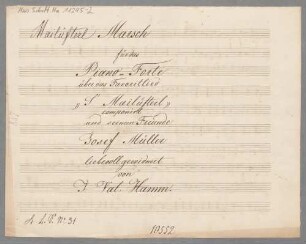 Mus. Schott Ha 11245-2
Mailüfterl Marsch
für das
Piano-Forte
über das Favoritlied
„'S Mailüfterl„
componirt
und seinem Freunde
Josef Müller
liebevoll gewidmet
von
J. Val. Hamm.
N° 31
10552